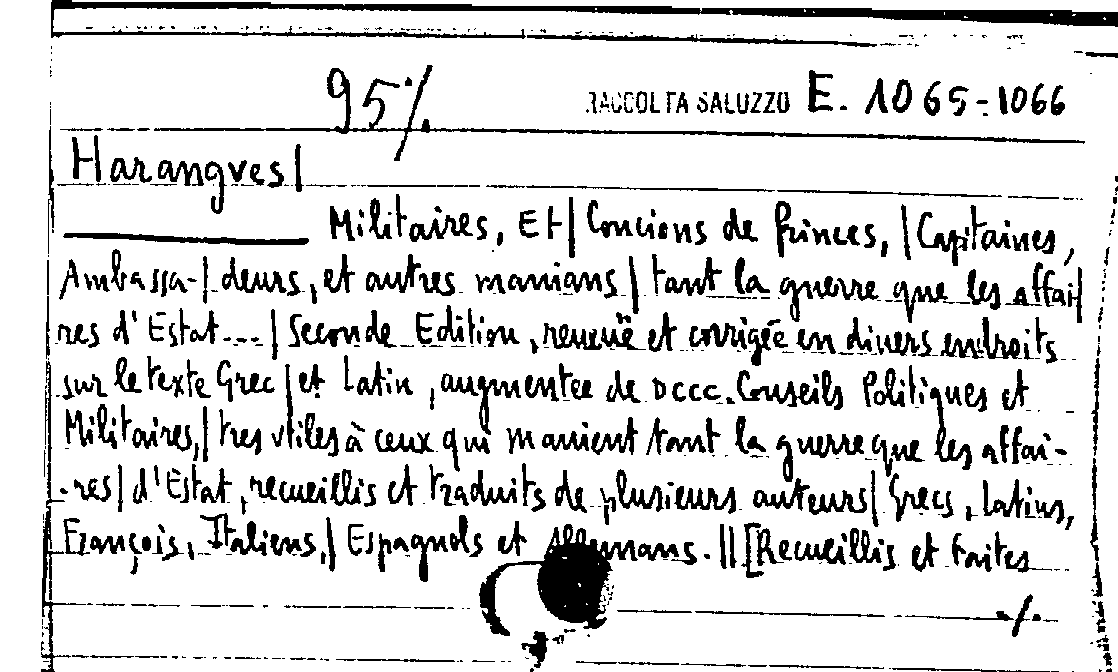 95 ./.
RACCOLTA SALUZZO E. 1065-1066
Harangves|
Militaires, Et| Concions de Princes, | Capitaines,
Ambassa-| deurs, et autres manians | tant la guerre que les affai|
res d'Estat...| Seconde Edition, reueüe et corrigée en diuers endroits
sur le texte Grec | et Latin, augmentee de DCCC. Conseils Politiques et
Militaires,| tres vtiles à ceux qui manient tant la guerre que les affai-
-res| d'Estat, recueillis et traduits de plusieurs auteurs| Grecs, Latins,
François, Italiens,| Espagnols et Allemans. || [Recueillis et faites
./.